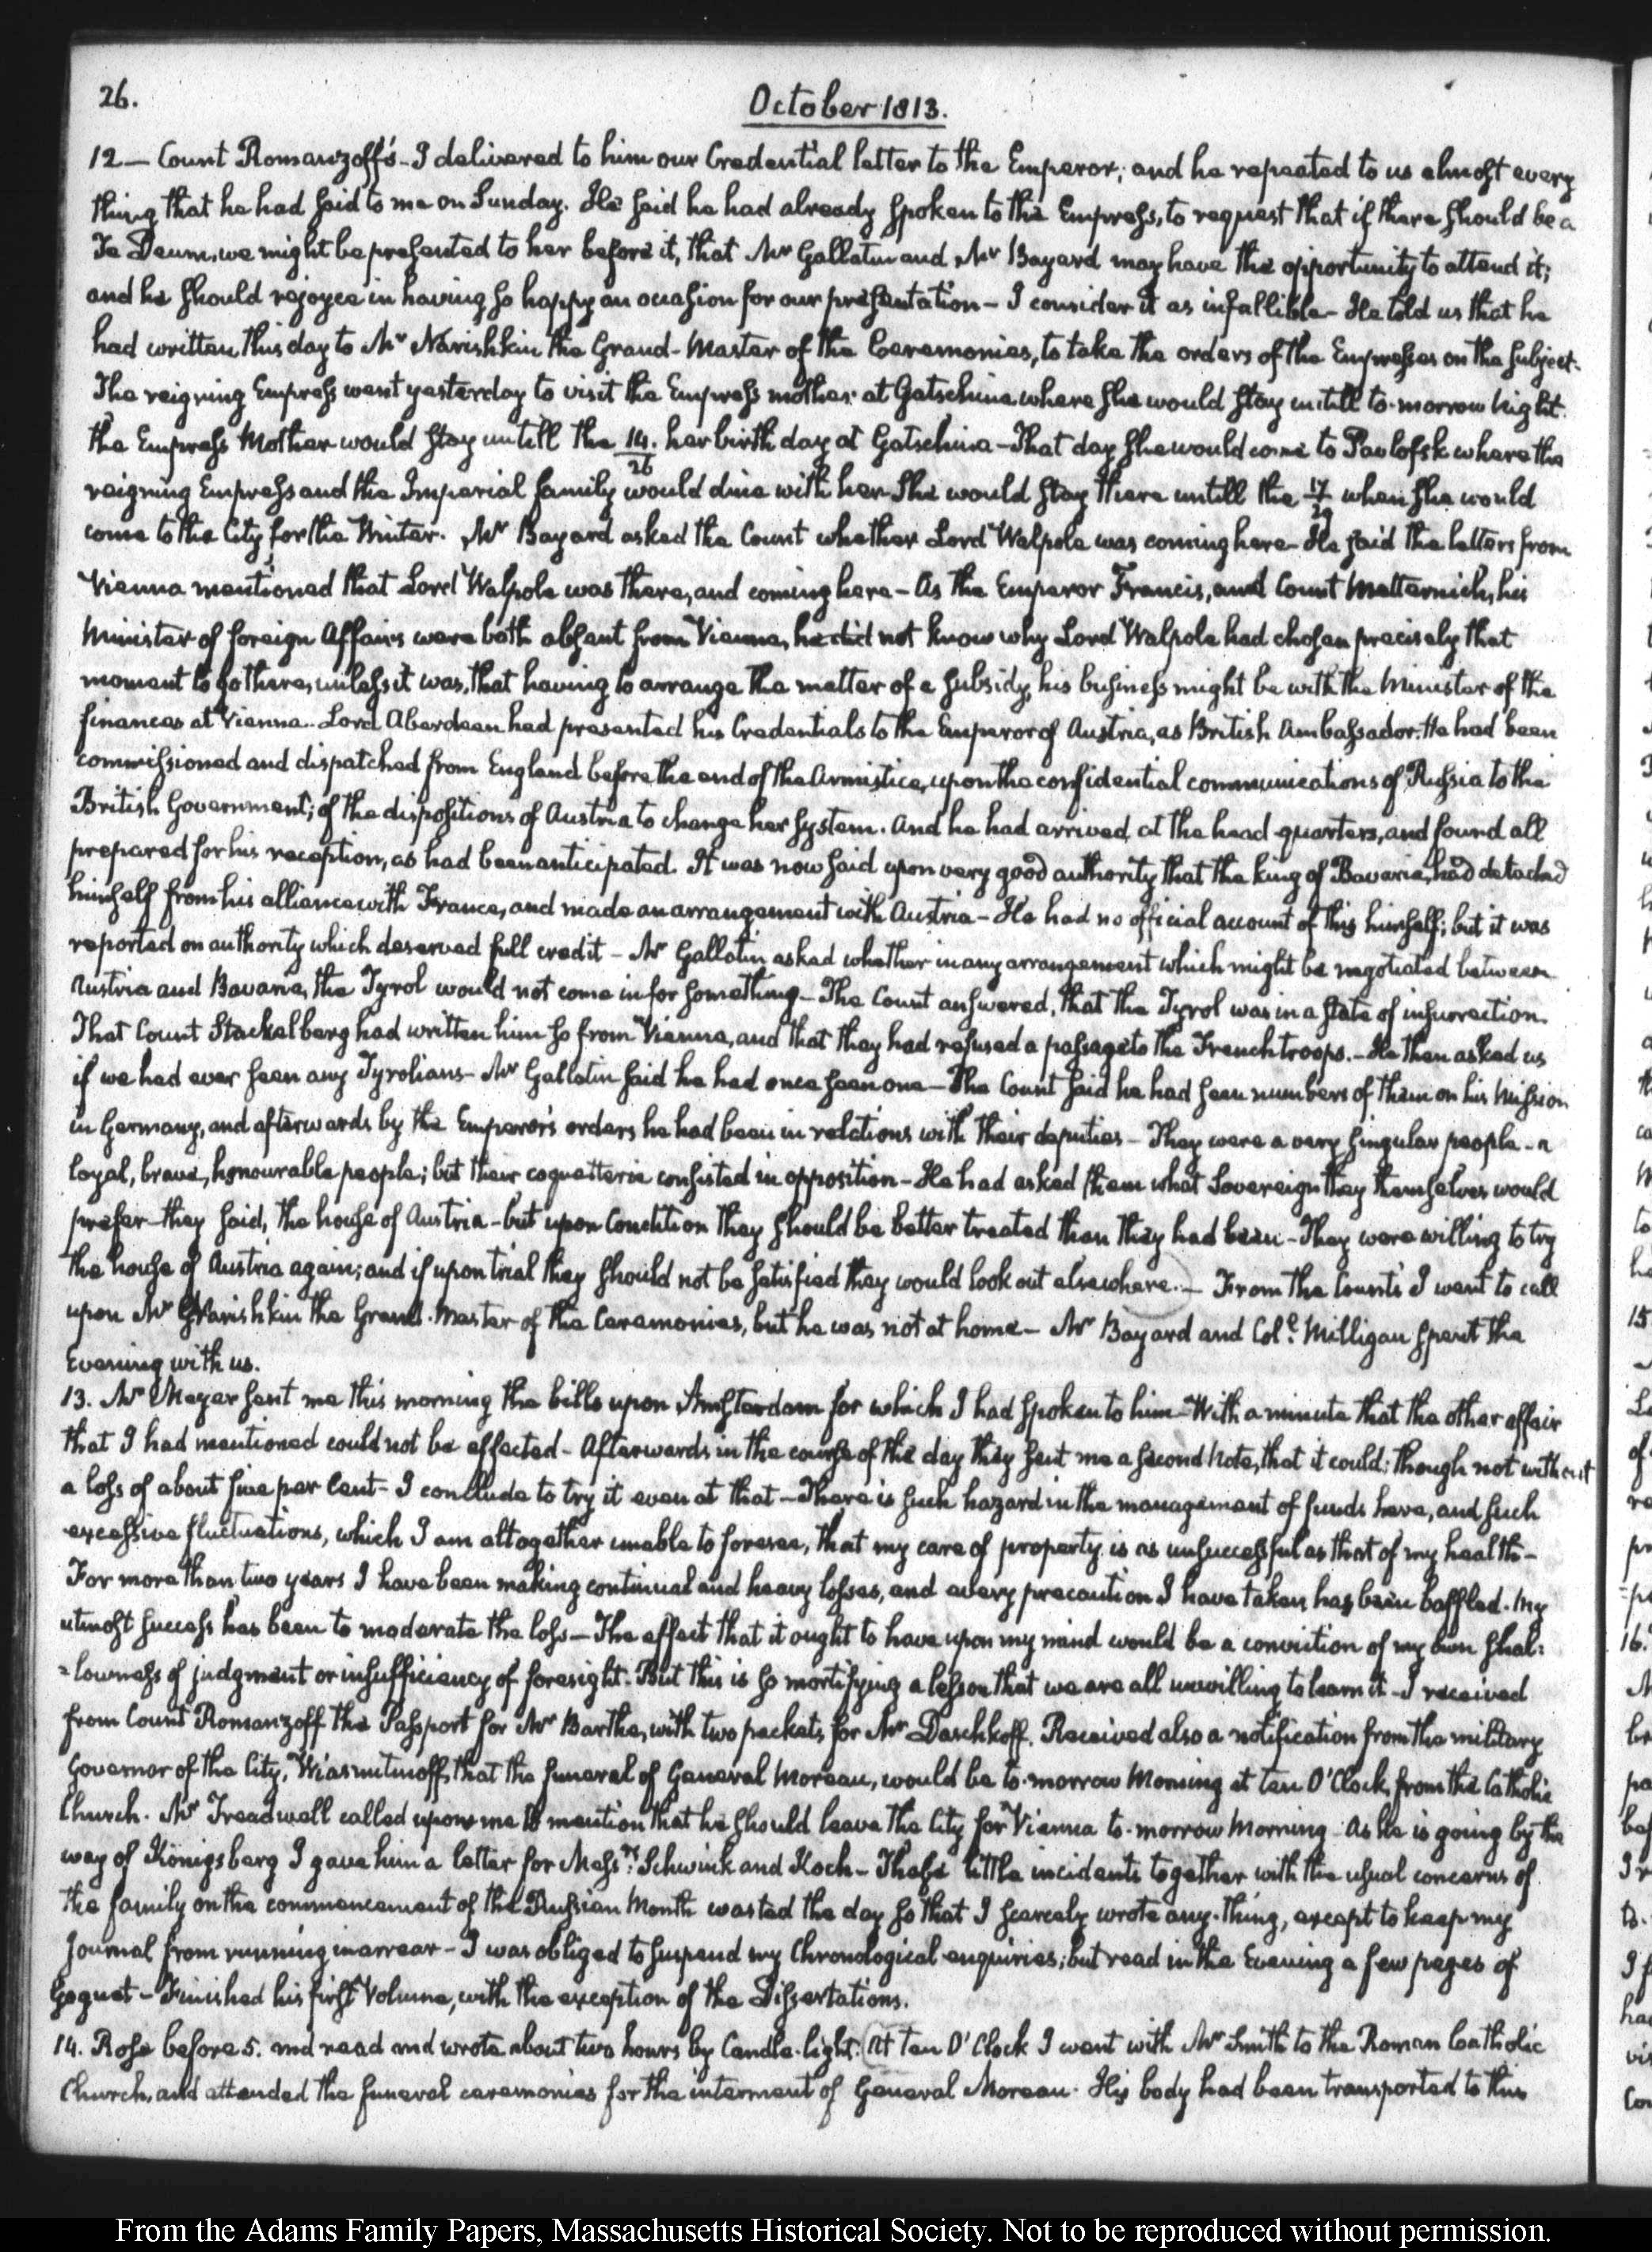 26.
October 1813.
12 — Count Romanzoff's - I delivered to him our Credential letter to the Emperor; and he repeated to us almost every
thing that he had said to me on Sunday. He said he had already spoken to the Empress, to request that if there should be a
Te Deum, we might be presented to her before it, that Mr Gallatin and Mr Bayard may have the opportunity to attend it;
and he should rejoyce in having so happy an occasion for our presentation - I consider it as infallible - He told us that he
had written this day to Mr Narishkin the Grand-Master of the Ceremonies, to take the orders of the Empresses on the subject.
The reigning Empress went yesterday to visit the Empress mother at Gatschina where she would stay untill to-morrow Night.
the Empress Mother would stay untill the 14/26. her birth day at Gatschina - That day she would come to Pavlofsk where the
reigning Empress and the Imperial family would dine with her She would stay there untill the 17/29 when she would
come to the City for the Winter. Mr Bayard asked the Count whether Lord Walpole was coming here - He said the letters from
Vienna mentioned that Lord Walpole was there, and coming here - As the Emperor Francis, and Count Metternich, his
Minister of foreign Affairs were both absent from Vienna, he did not know why Lord Walpole had chosen precisely that
moment to go there, unless it was, that having to arrange the matter of a subsidy, his business might be with the Minister of the
finances at Vienna. Lord Aberdeen had presented his Credentials to the Emperor of Austria, as British Ambassador. He had been
commissioned and dispatched from England before the end of the Armistice, upon the confidential communications of Russia to the
British Government; of the dispositions of Austria to change her system. And he had arrived at the head-quarters, and found all
prepared for his reception, as had been anticipated. It was now said upon very good authority that the king of Bavaria, had detached
himself from his alliance with France, and made an arrangement with Austria - He had no official account of this himself; but it was
reported on authority which deserved full credit - Mr Gallatin asked whether in any arrangement which might be negotiated between
Austria and Bavaria, the Tyrol would not come in for something - The Count answered, that the Tyrol was in a state of insurrection.
That Count Stackelberg had written him so from Vienna, and that they had refused a passage to the French troops. - He then asked us
if we had ever seen any Tyrolians - Mr Gallatin said he had once seen one - The Count said he had seen numbers of them on his Mission
in Germany, and afterwards by the Emperor's orders he had been in relations with their deputies - They were a very singular people - a
loyal, brave, honourable people; but their coquetterie consisted in opposition - He had asked them what Sovereign they themselves would
prefer - they said, the house of Austria - but upon Condition they should be better treated than they had been - They were willing to try
the house of Austria again; and if upon trial they should not be satisfied they would look out elsewhere. - From the Count's I went to call
upon Mr Narishkin the Grand-Master of the Ceremonies, but he was not at home - Mr Bayard and Coll. Milligan spent the
Evening with us.
13. Mr Meyer sent me this morning the bills upon Amsterdam for which I had spoken to him - With a minute that the other affair
that I had mentioned could not be effected - Afterwards in the course of the day they sent me a second Note, that it could; though not without
a loss of about five per Cent - I conclude to try it even at that - There is such hazard in the management of funds here, and such
excessive fluctuations, which I am altogether unable to foresee, that my care of property is as unsuccessful as that of my health -
For more than two years I have been making continual and heavy losses, and every precaution I have taken has been baffled. My
utmost success has been to moderate the loss - The effect that it ought to have upon my mind would be a conviction of my own shal=
=lowness of judgment or insufficiency of foresight - But this is so mortifying a lesson that we are all unwilling to learn it - I received
from Count Romanzoff the Passport for Mr Barthe, with two packets, for Mr Daschkoff. Received also a notification from the military
Governor of the City, Wiasmitinoff, that the funeral of General Moreau, would be to-morrow Morning at ten O'Clock, from the Catholic
Church. Mr Treadwell called upon me to mention that he should leave the City for Vienna to-morrow Morning - As he is going by the
way of Königsberg I gave him a letter for Messrs. Schwink and Koch - These little incidents together with the usual concerns of
the family on the commencement of the Russian Month wasted the day so that I scarcely wrote any-thing, except to keep my
Journal from running in arrear - I was obliged to suspend my Chronological enquiries; but read in the Evening a few pages of
Goguet - Finished his first Volume, with the exception of the Dissertations.
14. Rose before 5. and read and wrote about two hours by Candle-light. At ten O'Clock I went with Mr Smith to the Roman Catholic
Church, and attended the funeral ceremonies for the interment of General Moreau. His body had been transported to this
From the Adams Family Papers, Massachusetts Historical Society. Not to be reproduced without permission.